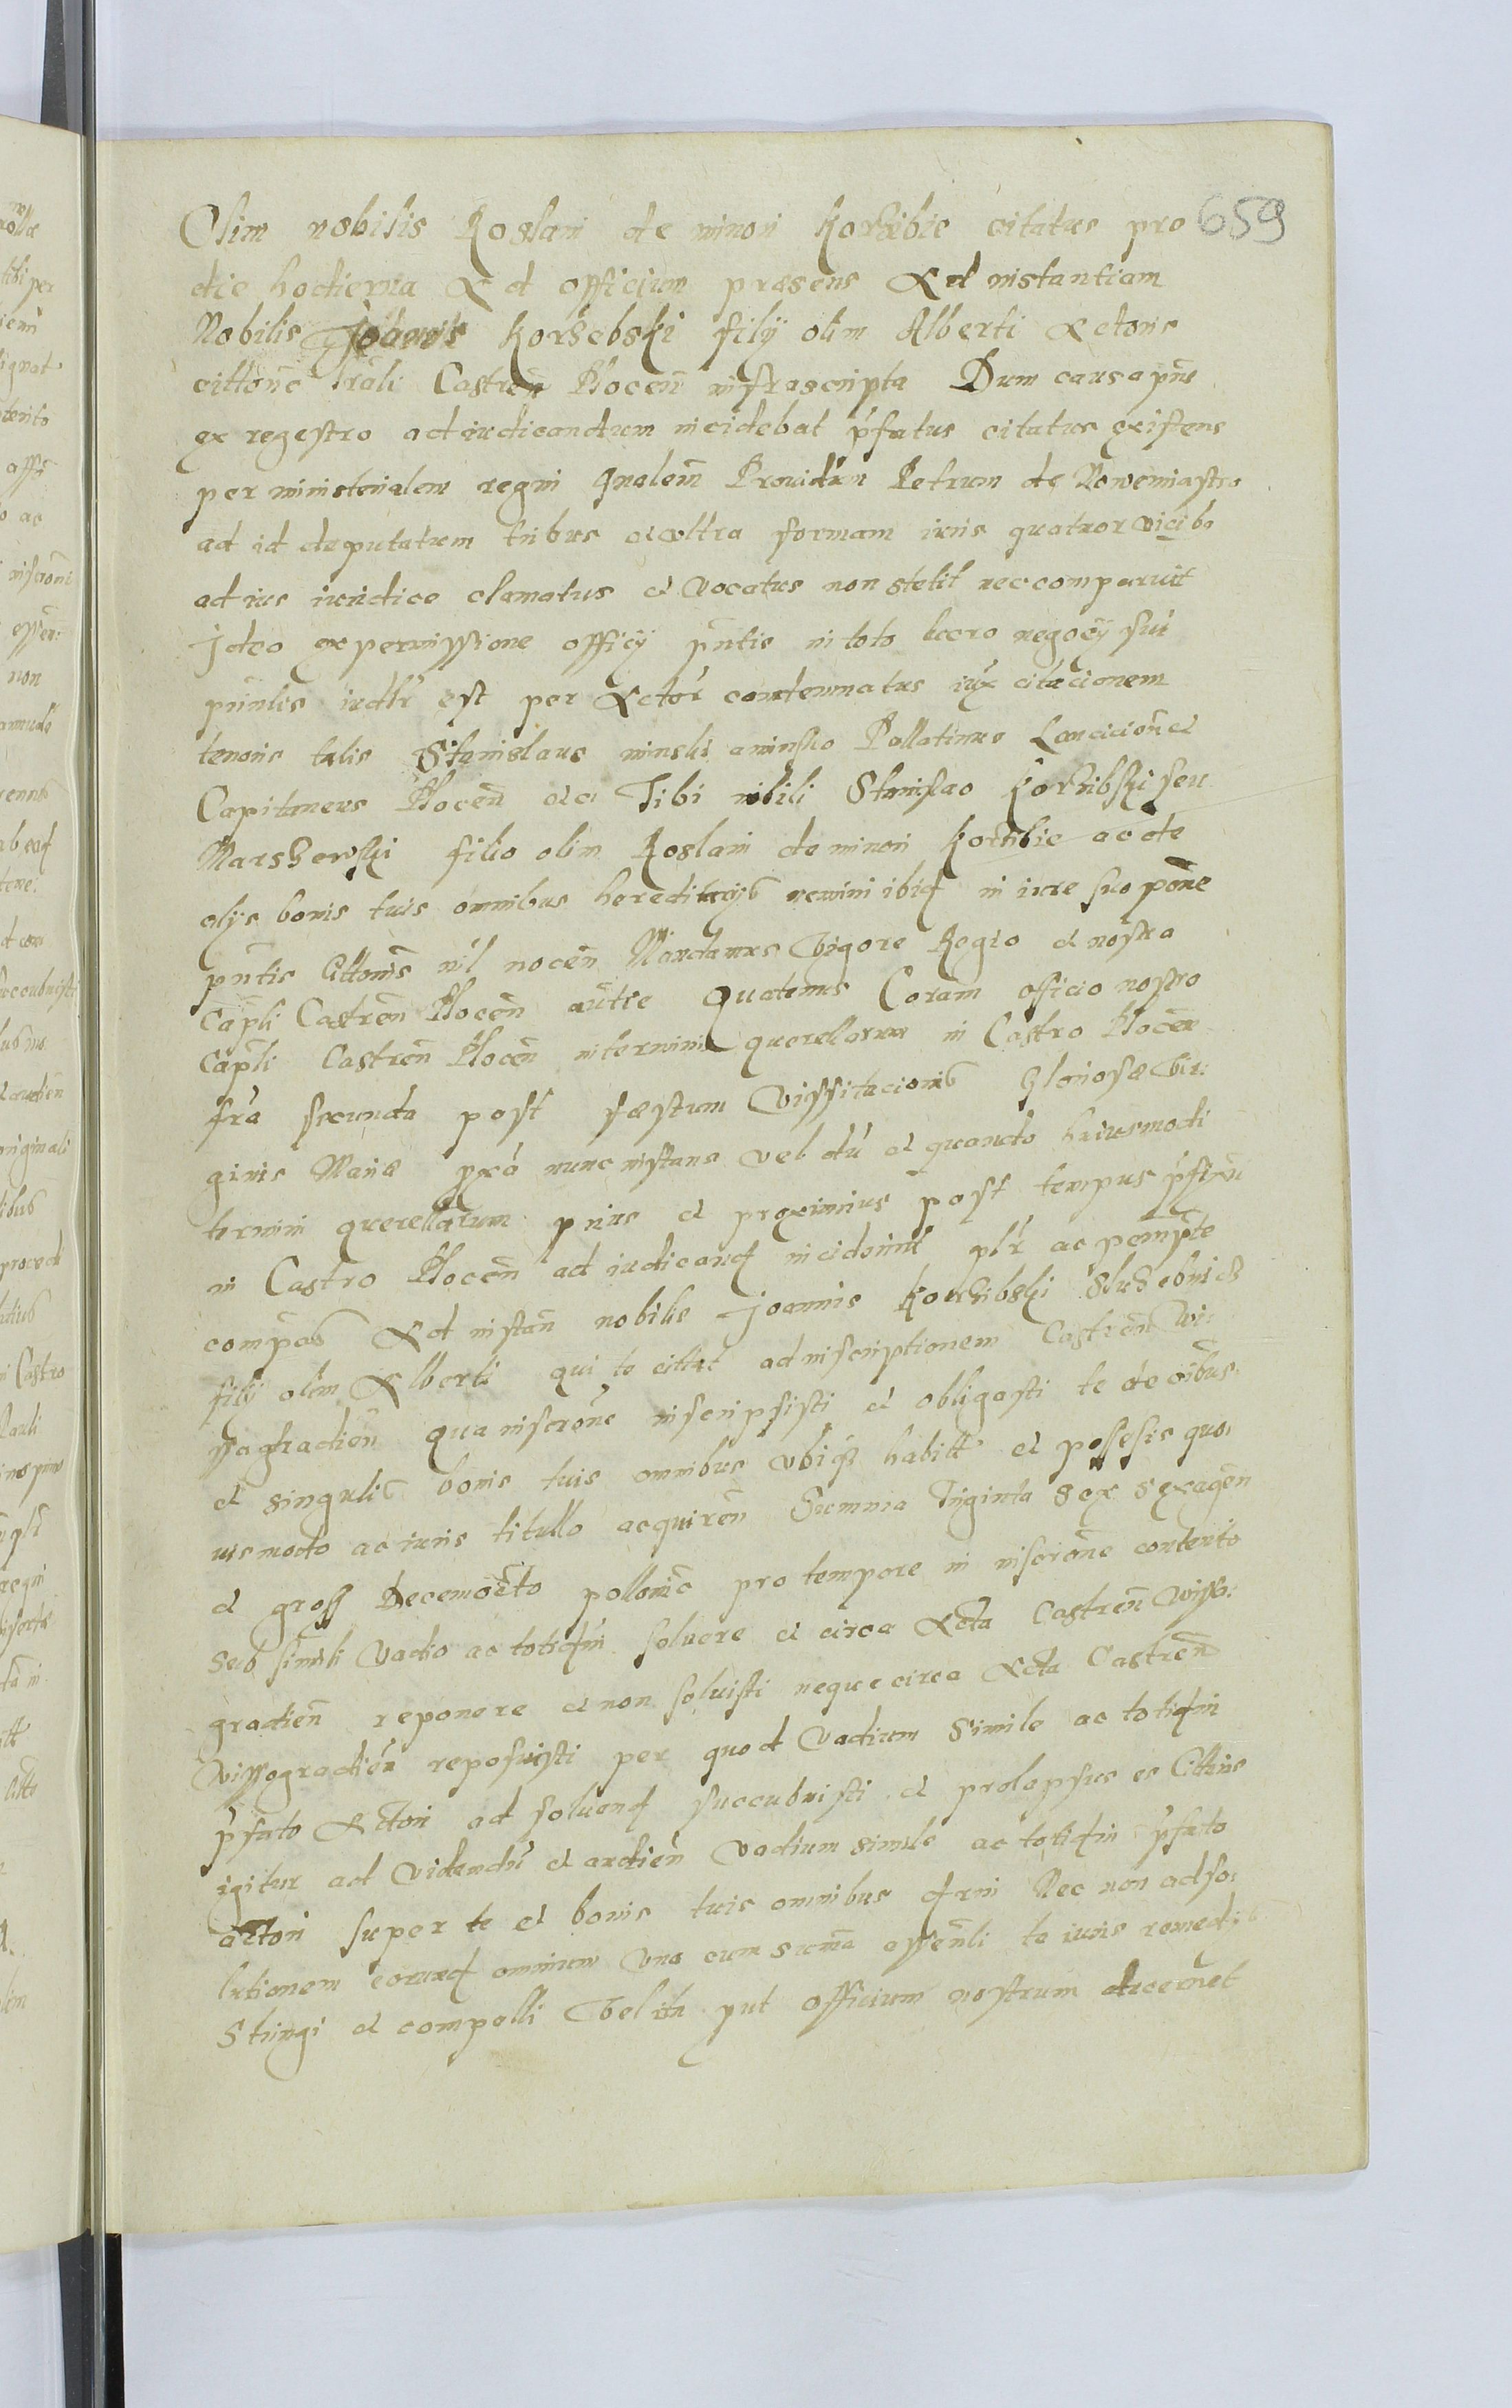 659
Olim nobilis Roslani de minori Korzibie citatus pro
die hodierna Ad officium præsens Ad instantiam
Nobilis Joannis Korzebski filÿ olim Alberti Actoris
cittone lrali Castren Plocen infrascripta Dum causa pns
ex regestro ad iudicandum incidebat pfatus citatus existens
per ministerialem regni gnalem Providum Petrum de Nowemiastro
ad id deputatum tribus et ultra formam iuris quatuor vicibs
ad ius iuridice clamatus et vocatus non stetit nec comparuit
Ideo ex permissione officÿ pntis in toto lucro negocÿ sui
pntis iudlr est per Actor condemnatus iux citacionem
tenoris talis Stanislaus minski a minsko Pallatinus Lancicien et
Capitaneus Plocen etc Tibi nobili Stanislao Korzibski seu
Marszewski filio olim Roslani de minori Korzibie ac de
alÿs bonis tuis omnibus hereditarÿs nemini ibiq in iure suo pone
pntis Cittonis nil nocen Mandamus Vigore Regio et nostra
Capli Castren Plocen autte Quatenus Coram officio nostro
Capli Castren Plocen in terminis querellarum in Castro Plocen
fra secunda post fæstum Vissitacionis Gloriosæ Vir:
ginis Mariæ pxo nunc instans vel du et quando huiusmodi
termini querellarum prius et proximius post tempus pfixu
in Castro Plocen ad iudicand inciderint plr ac pempte
compas Ad instan nobilis Joannis Korzibski Sluzebnicz
filÿ olim Alberti qui te cittat ad inscriptionem Castren Wi:
ssagradien qua inscrone inscripsisti et obligasti te de oibus
et singulis bonis tuis omnibus vbiqz habitt et posesis quo:
uismodo ac iuris titullo acquiren Summa Triginta sex sexagen
et gross Decemocto pollonic pro tempore in inscrione contento
sub simili vadio ac totidm soluere et circa Acta Castren Wisso:
gradien reponere et non soluisti neque circa Acta Castren
Wissogradien reposuisti per quod vadium simile ac totidm
pfato Actori ad soluend succubuisti et prolapsus es Cittaris
igitur ad videndu et audien vadium simile ac totidm pfato
actori super te et bonis tuis omnibus Nec non ad so:
lutionem eorund omnium vna cum suma essenli te iuris remedÿs
stringi et compelli Vel ita put officium nostrum decernet